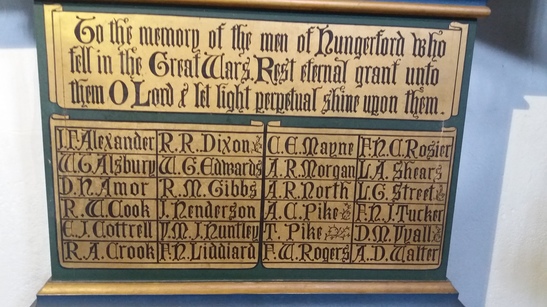 To the memory of the men of Hungerford who
fell in the Great Wars. Rest eternal grant unto
them O Lord & let light perpetual shine upon them.
J.F. Alexander R.R. Dixon C.E. Mayne F.H.C. Rosier
W.G. Alsbury W.G. Edwards A.R. Morgan L.A. Shears
D.H. Amor R.M. Gibbs A.R. North L.G. Street
R.W. Cook J. Henderson A.C. Pike F.H.J. Tucker
E.J. Cottrell V.M.J. Huntley T. Pike D.M. Vyall
R.A. Crook F.H. Liddiard F.W. Rogers A.D. Walter